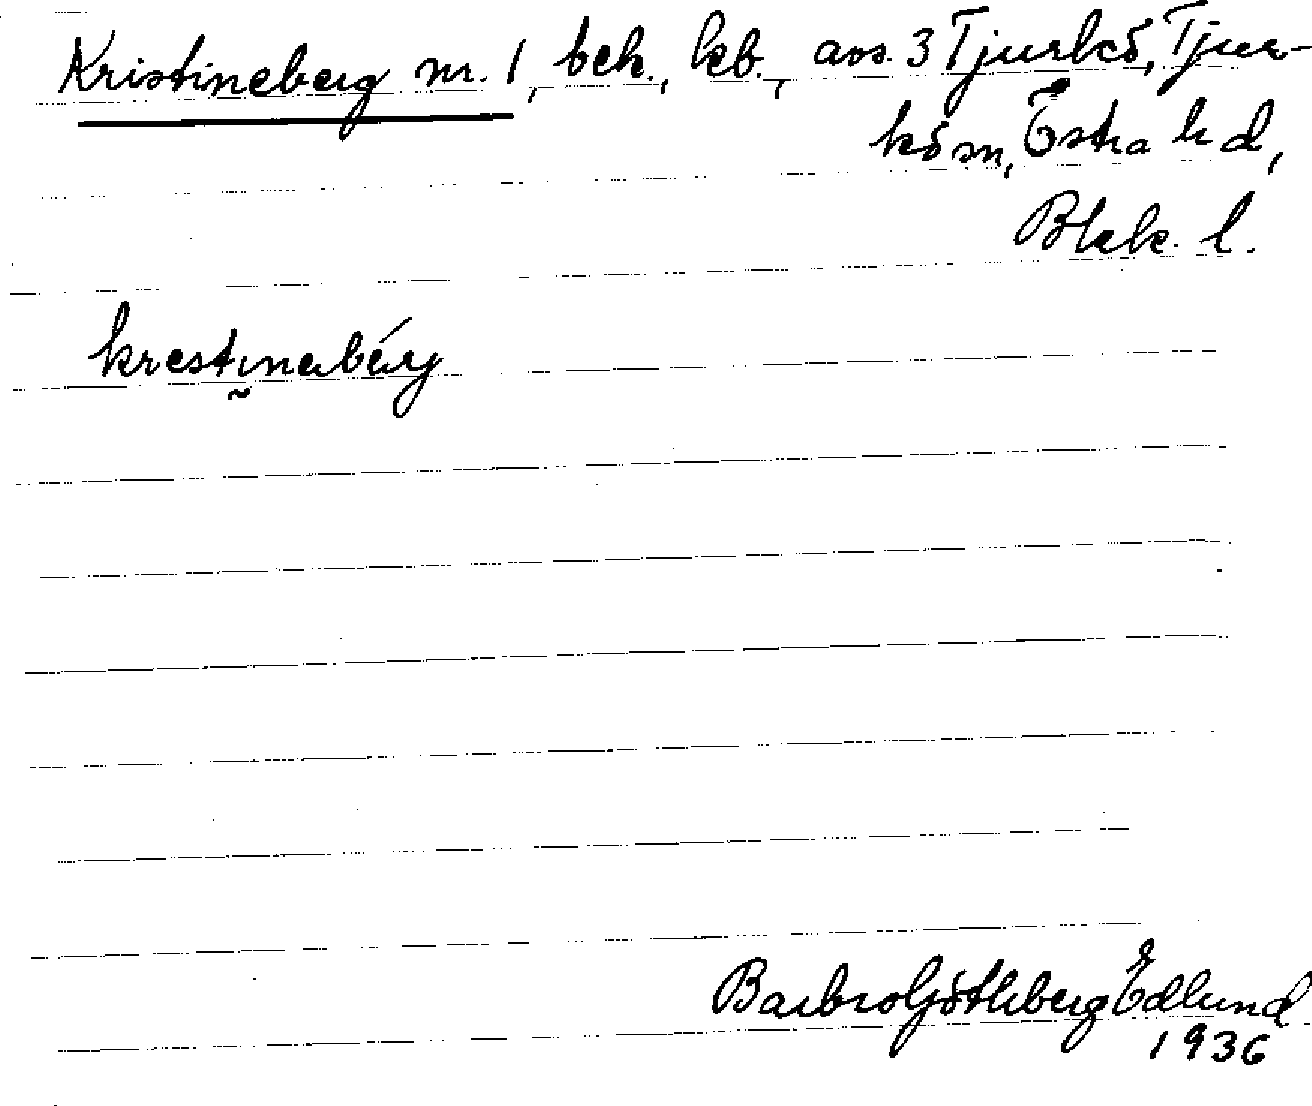 Kristineberg nr. 1, beh., kb., avs. 3 Tjurkö, Tjur-
kö sn, Östra hd,
Blek. l.
krestineberg
Barbro Göthberg Edlund
1936